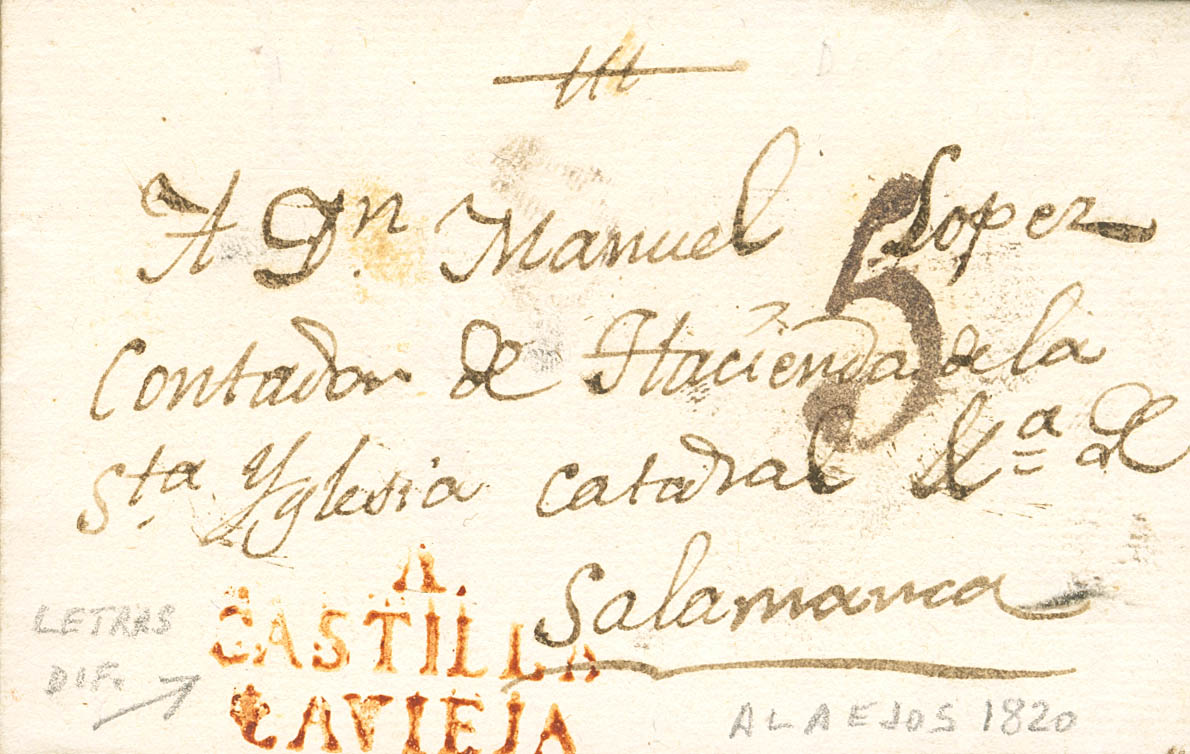 A Dn. Manuel Lopez
Contador de Hacienda de la
Sta. Yglesia catadral de
Salamanca
5
A.
CASTILLA
LAVIEJA
LETRAS
DIF.
ALAEJOS 1820